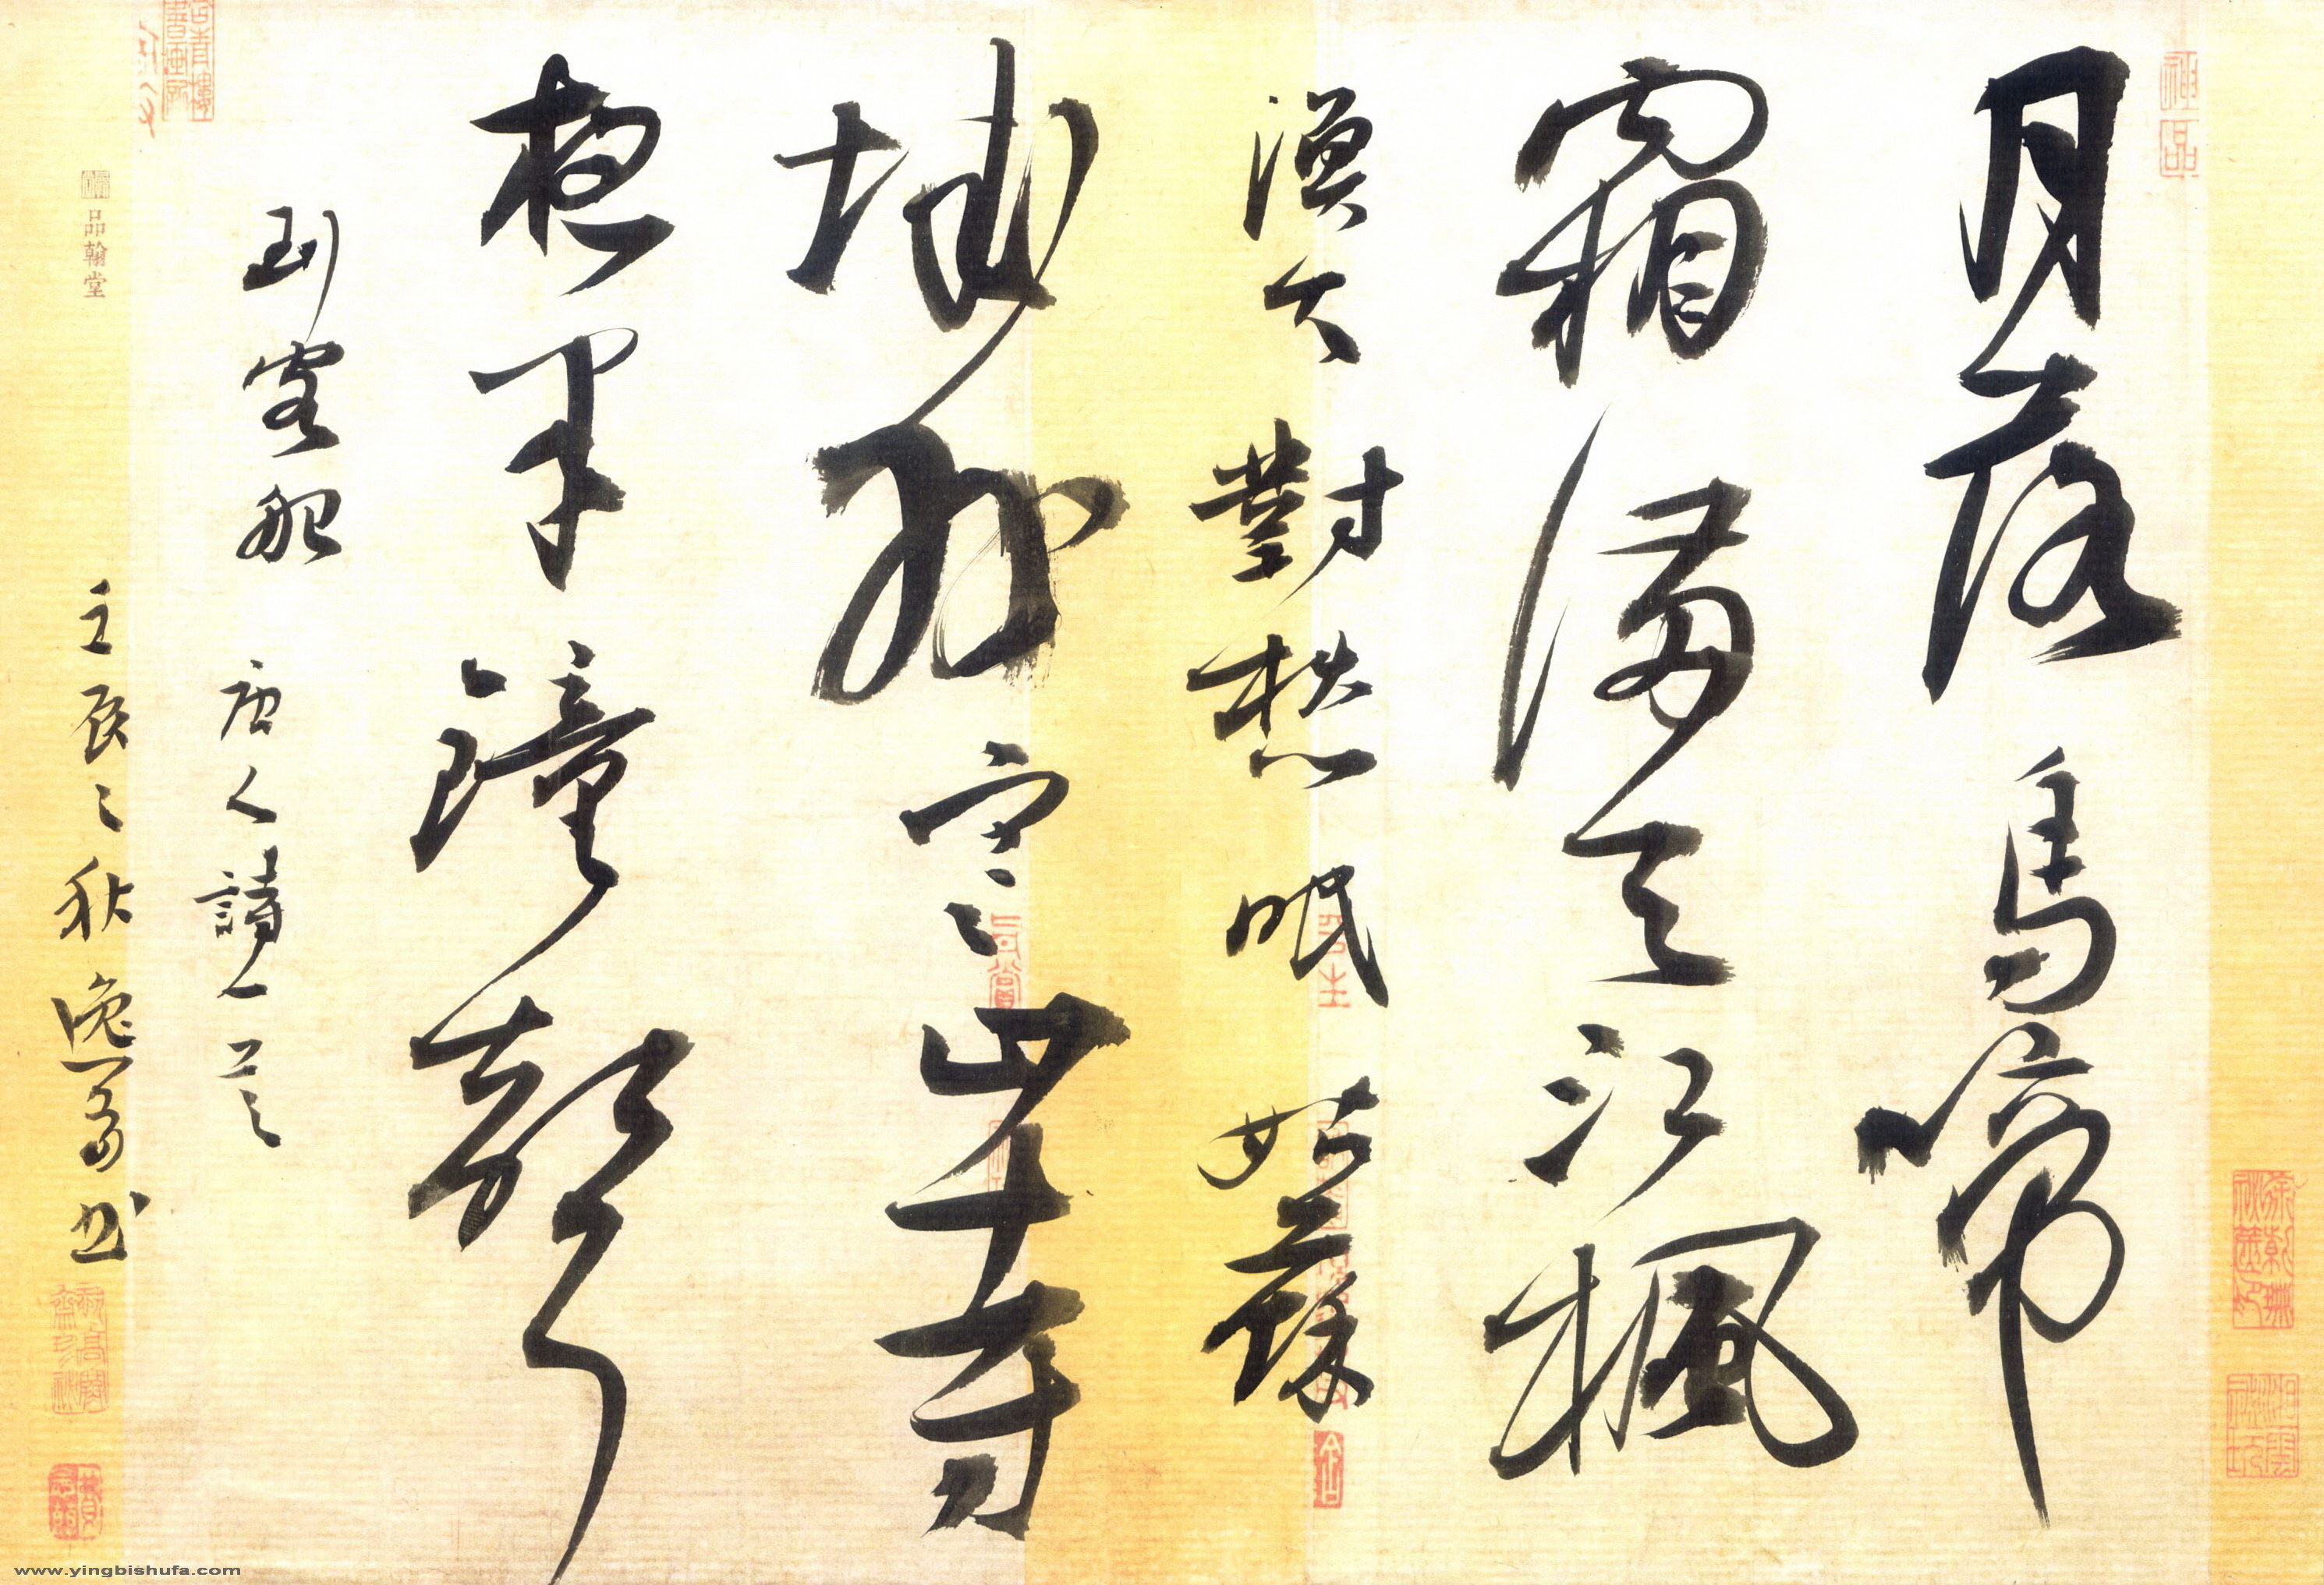 神品
月落烏啼
霜滿天江楓
漁火對愁眠姑蘇
城外寒山寺
夜半鐘聲
到客船 唐人詩一首
壬辰之秋逸翁书
品翰堂
www.yingbishufa.com